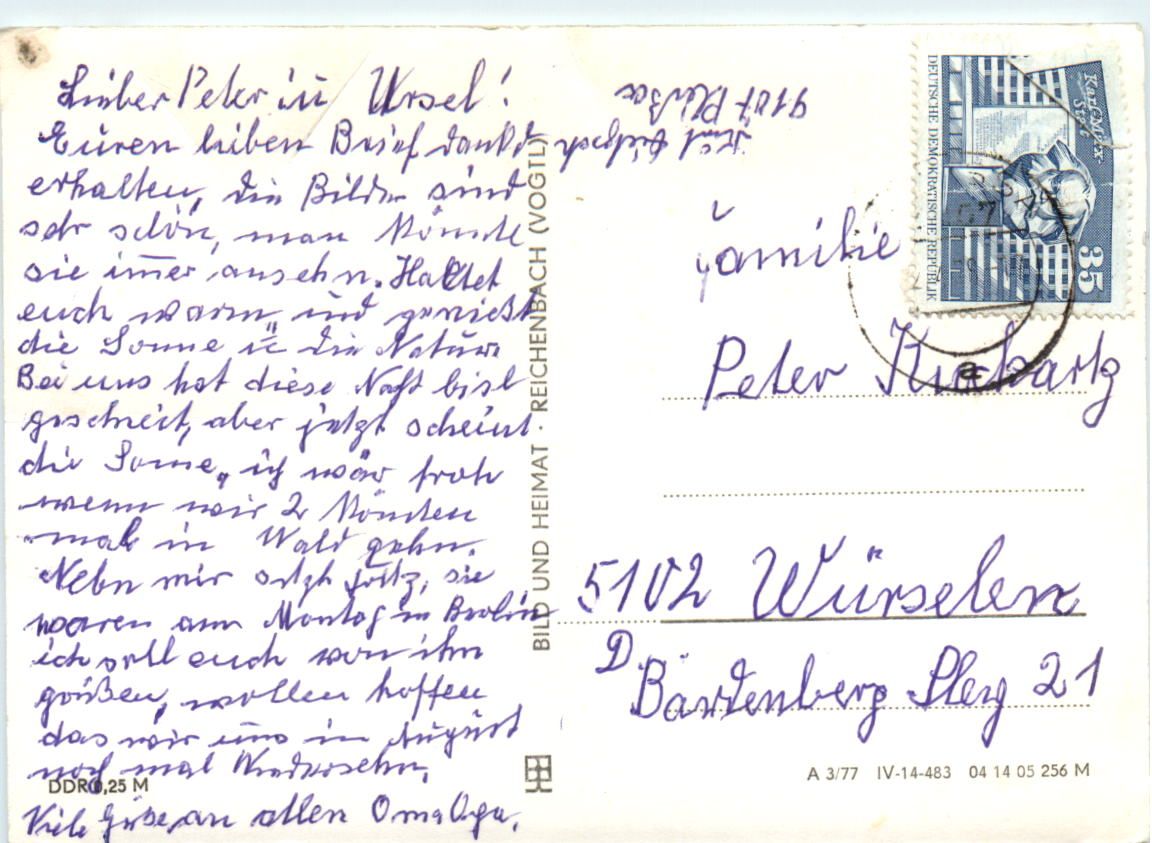 Lieber Peter ü Ursel!
Euren lieben Brief dankd
erhalten, die Bilder sind
sehr schön, man könnte
sie imer ansehn. Haltet
euch warm und genießt
die Sonne ü die Natur
Bei uns hat diese Nacht bisl
geschneit, aber jetzt scheint
die Sonne, ich wär froh
wenn wir 2 könnten
mal in Wald gehn.
Nebn mir sitzt, sie
waren am Montag in Berlin
ich soll euch von ihm
grüßen, wollen hoffen
das wir uns im August
noch mal Wiedersehn,
Viele Grüße an allen Oma
DDR 0,25 M
BILD UND HEIMAT REICHENBACH (VOGTL)
9107
DEUTSCHE DEMOKRATISCHE REPUBLIK
Karl-Marx-
Stadt
35
Familie
Peter
5102 Würselen
D.
Bardenberg 21
A 3/77 IV-14-483 04 14 05 256 M